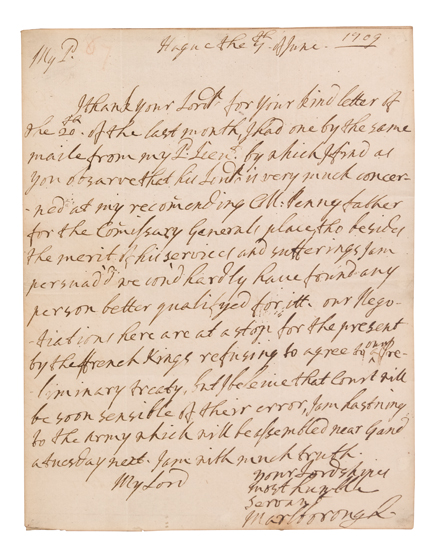 Hague the 7th of June. 1709
My Ld.
I thank your Lordp. for your kind letter of
the 20th. of the last month, I had one by the same
maile from my Ld. Lieut. by which I find as
you obsarve that his Lordp. is very much concer-
-ned at my recomending Coll. Pennyfather
for the Comissary Generals place, tho besides
the merit of his services and sufferings I am
persuad'd we cou'd hardly have found any
person better qualifyed for itt. our Nego-
-tiations here are at a stop for the present
by the ffrench Kings refusing to agree to our Pre-
-liminary treaty, but I beleive that Court will
be soon sensible of their error, I am hastning
to the Army which will be assembled near Gand
a tuesday next. I am with much truth
My Lord
your Lordships
most humble
servant
Marlborough.